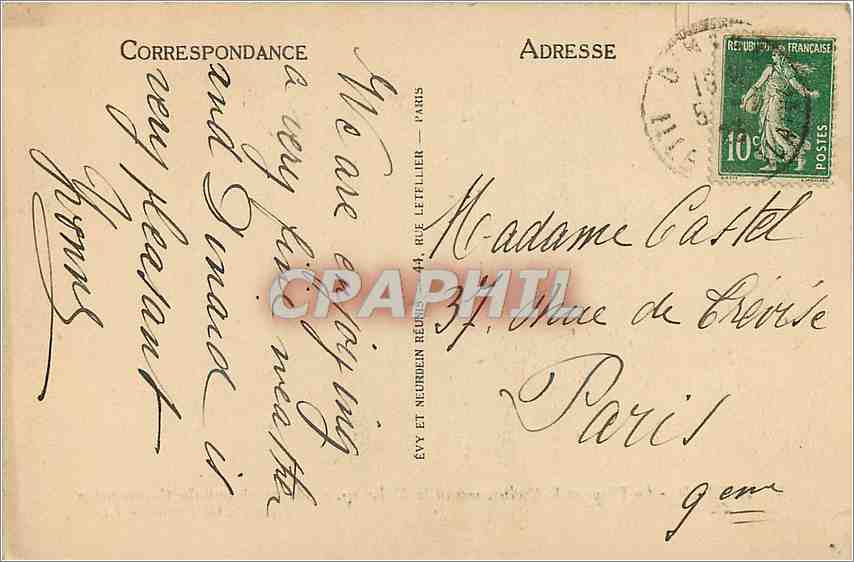 CORRESPONDANCE
We are enjoying
a very fine weather
and Dinard is
very pleasant
Yvonne
ÉVY ET NEURDEIN RÉUNIS 44, RUE LETELLIER — PARIS
ADRESSE
RÉPUBLIQUE FRANÇAISE
10c
POSTES
ILLE
Madame Castel
37, Rue de Trévise
Paris
9eme
CPARHIL